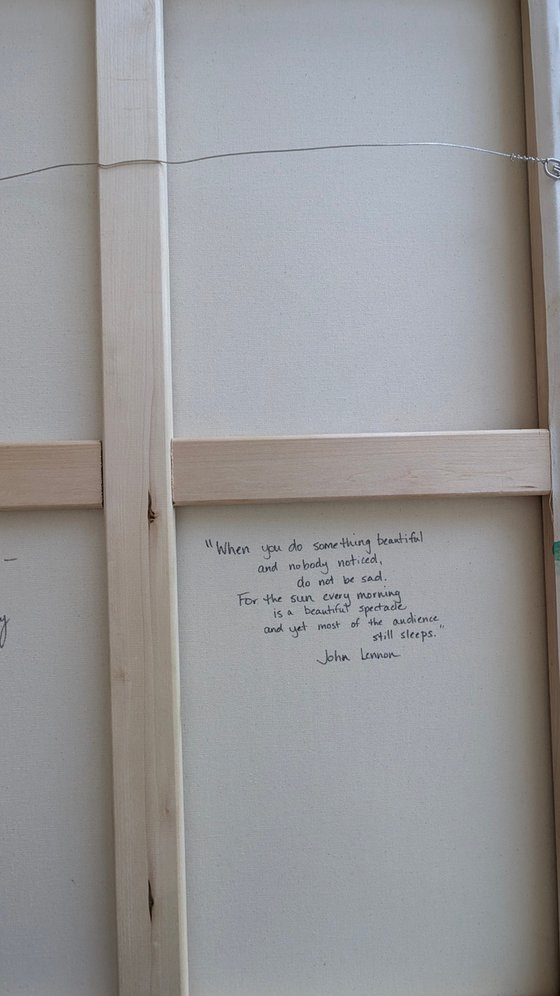 "When you do something beautiful
and nobody noticed,
do not be sad.
For the sun every morning
is a beautiful spectacle
and yet most of the audience
still sleeps."
John Lennon